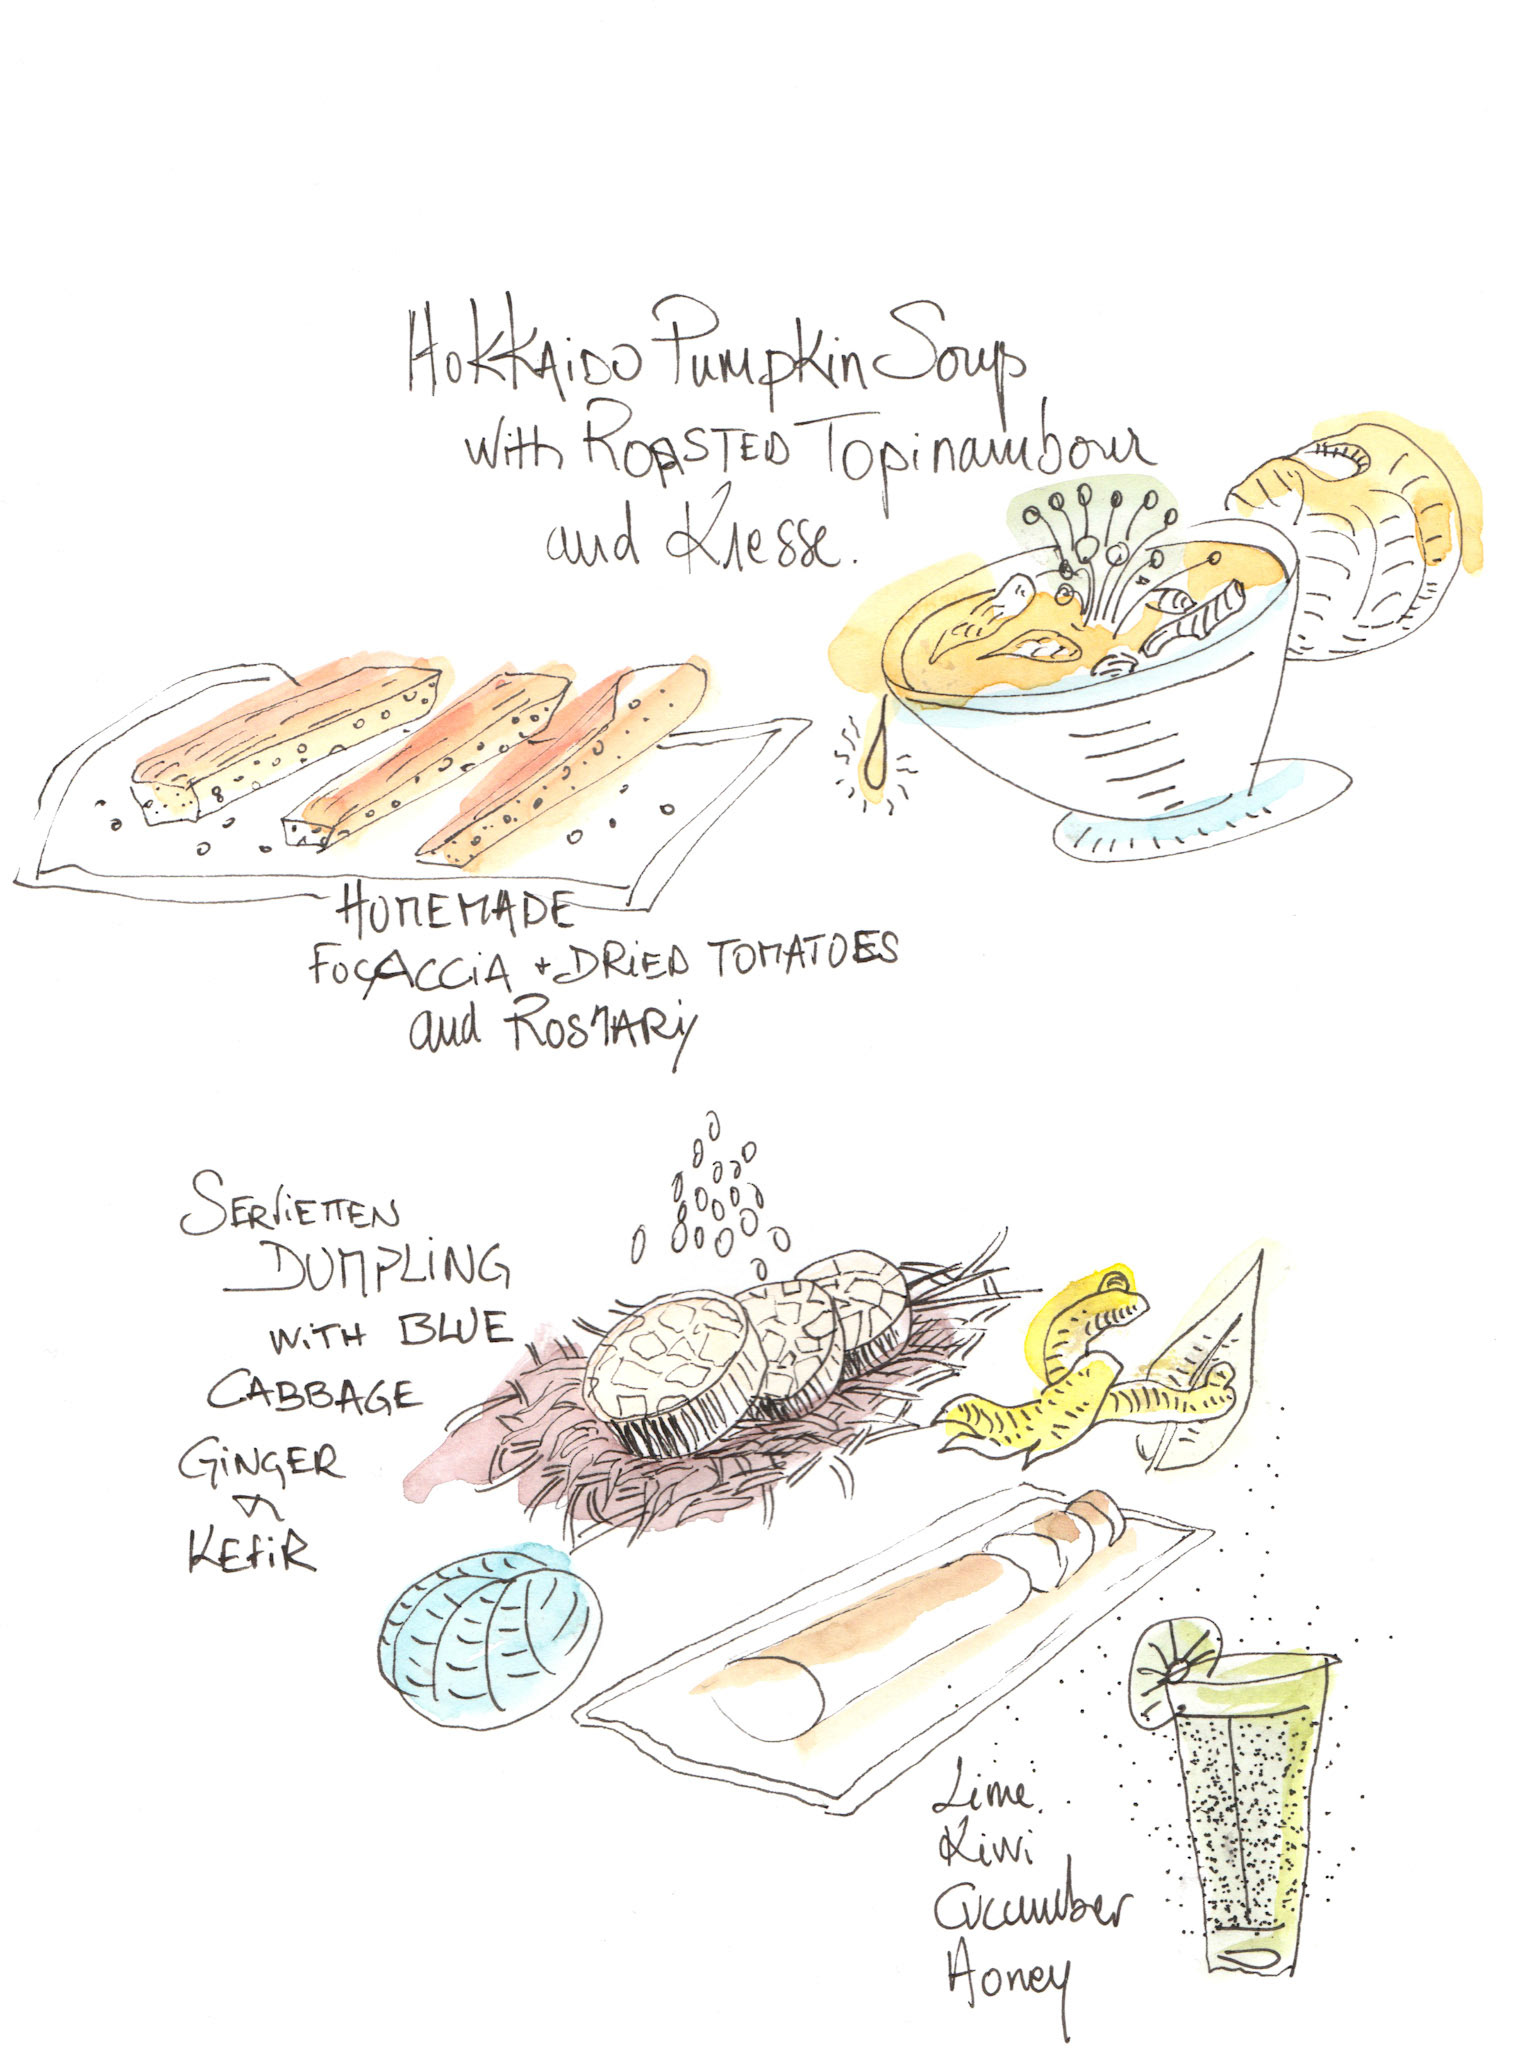 Hokkaido Pumpkin Soup
with Roasted Topinambour
and Kresse.
HOMEMADE
FOCACCIA + DRIED TOMATOES
and ROSMARiy
SERViETTEN
DUMPLiNG
WiTH BLUE
CABBAGE
GiNGER
&
KEFiR
Lime
Kiwi
Cucumber
Honey